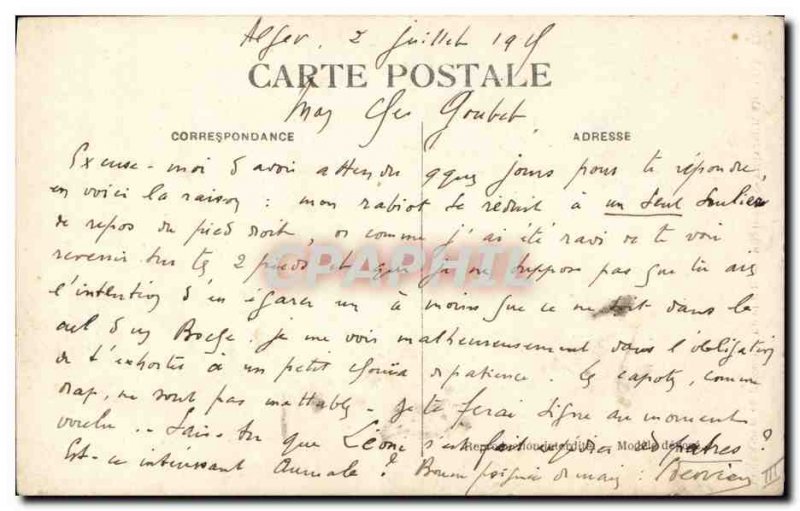 Alger, 2 juillet 191
CARTE POSTALE
Mon cher Goubet,
CORRESPONDANCE
ADRESSE
Excuse-moi d'avoir attendu qques jours pour te répondre,
en voici la raison : mon rabiot se réduit à un seul soulier
de repos du pied droit, or comme j'ai été ravi de te voir
revenir sur tes 2 pieds et que je ne suppose pas que tu aies
l'intention d'en égarer un à moins que ce ne soit dans le
cul d'un Boche, je me vois malheureusement dans l'obligation
de t'exhorter à un petit de patience. les capotes, comme
drap, ne sont pas mettables. Je te ferai signe au moment
voulu. Sais-tu que s'est fait ?
Reproduction interdite Modèle déposé
Est-ce intéressant Aumale ? Bonne poignée de main :
CPAPHIL